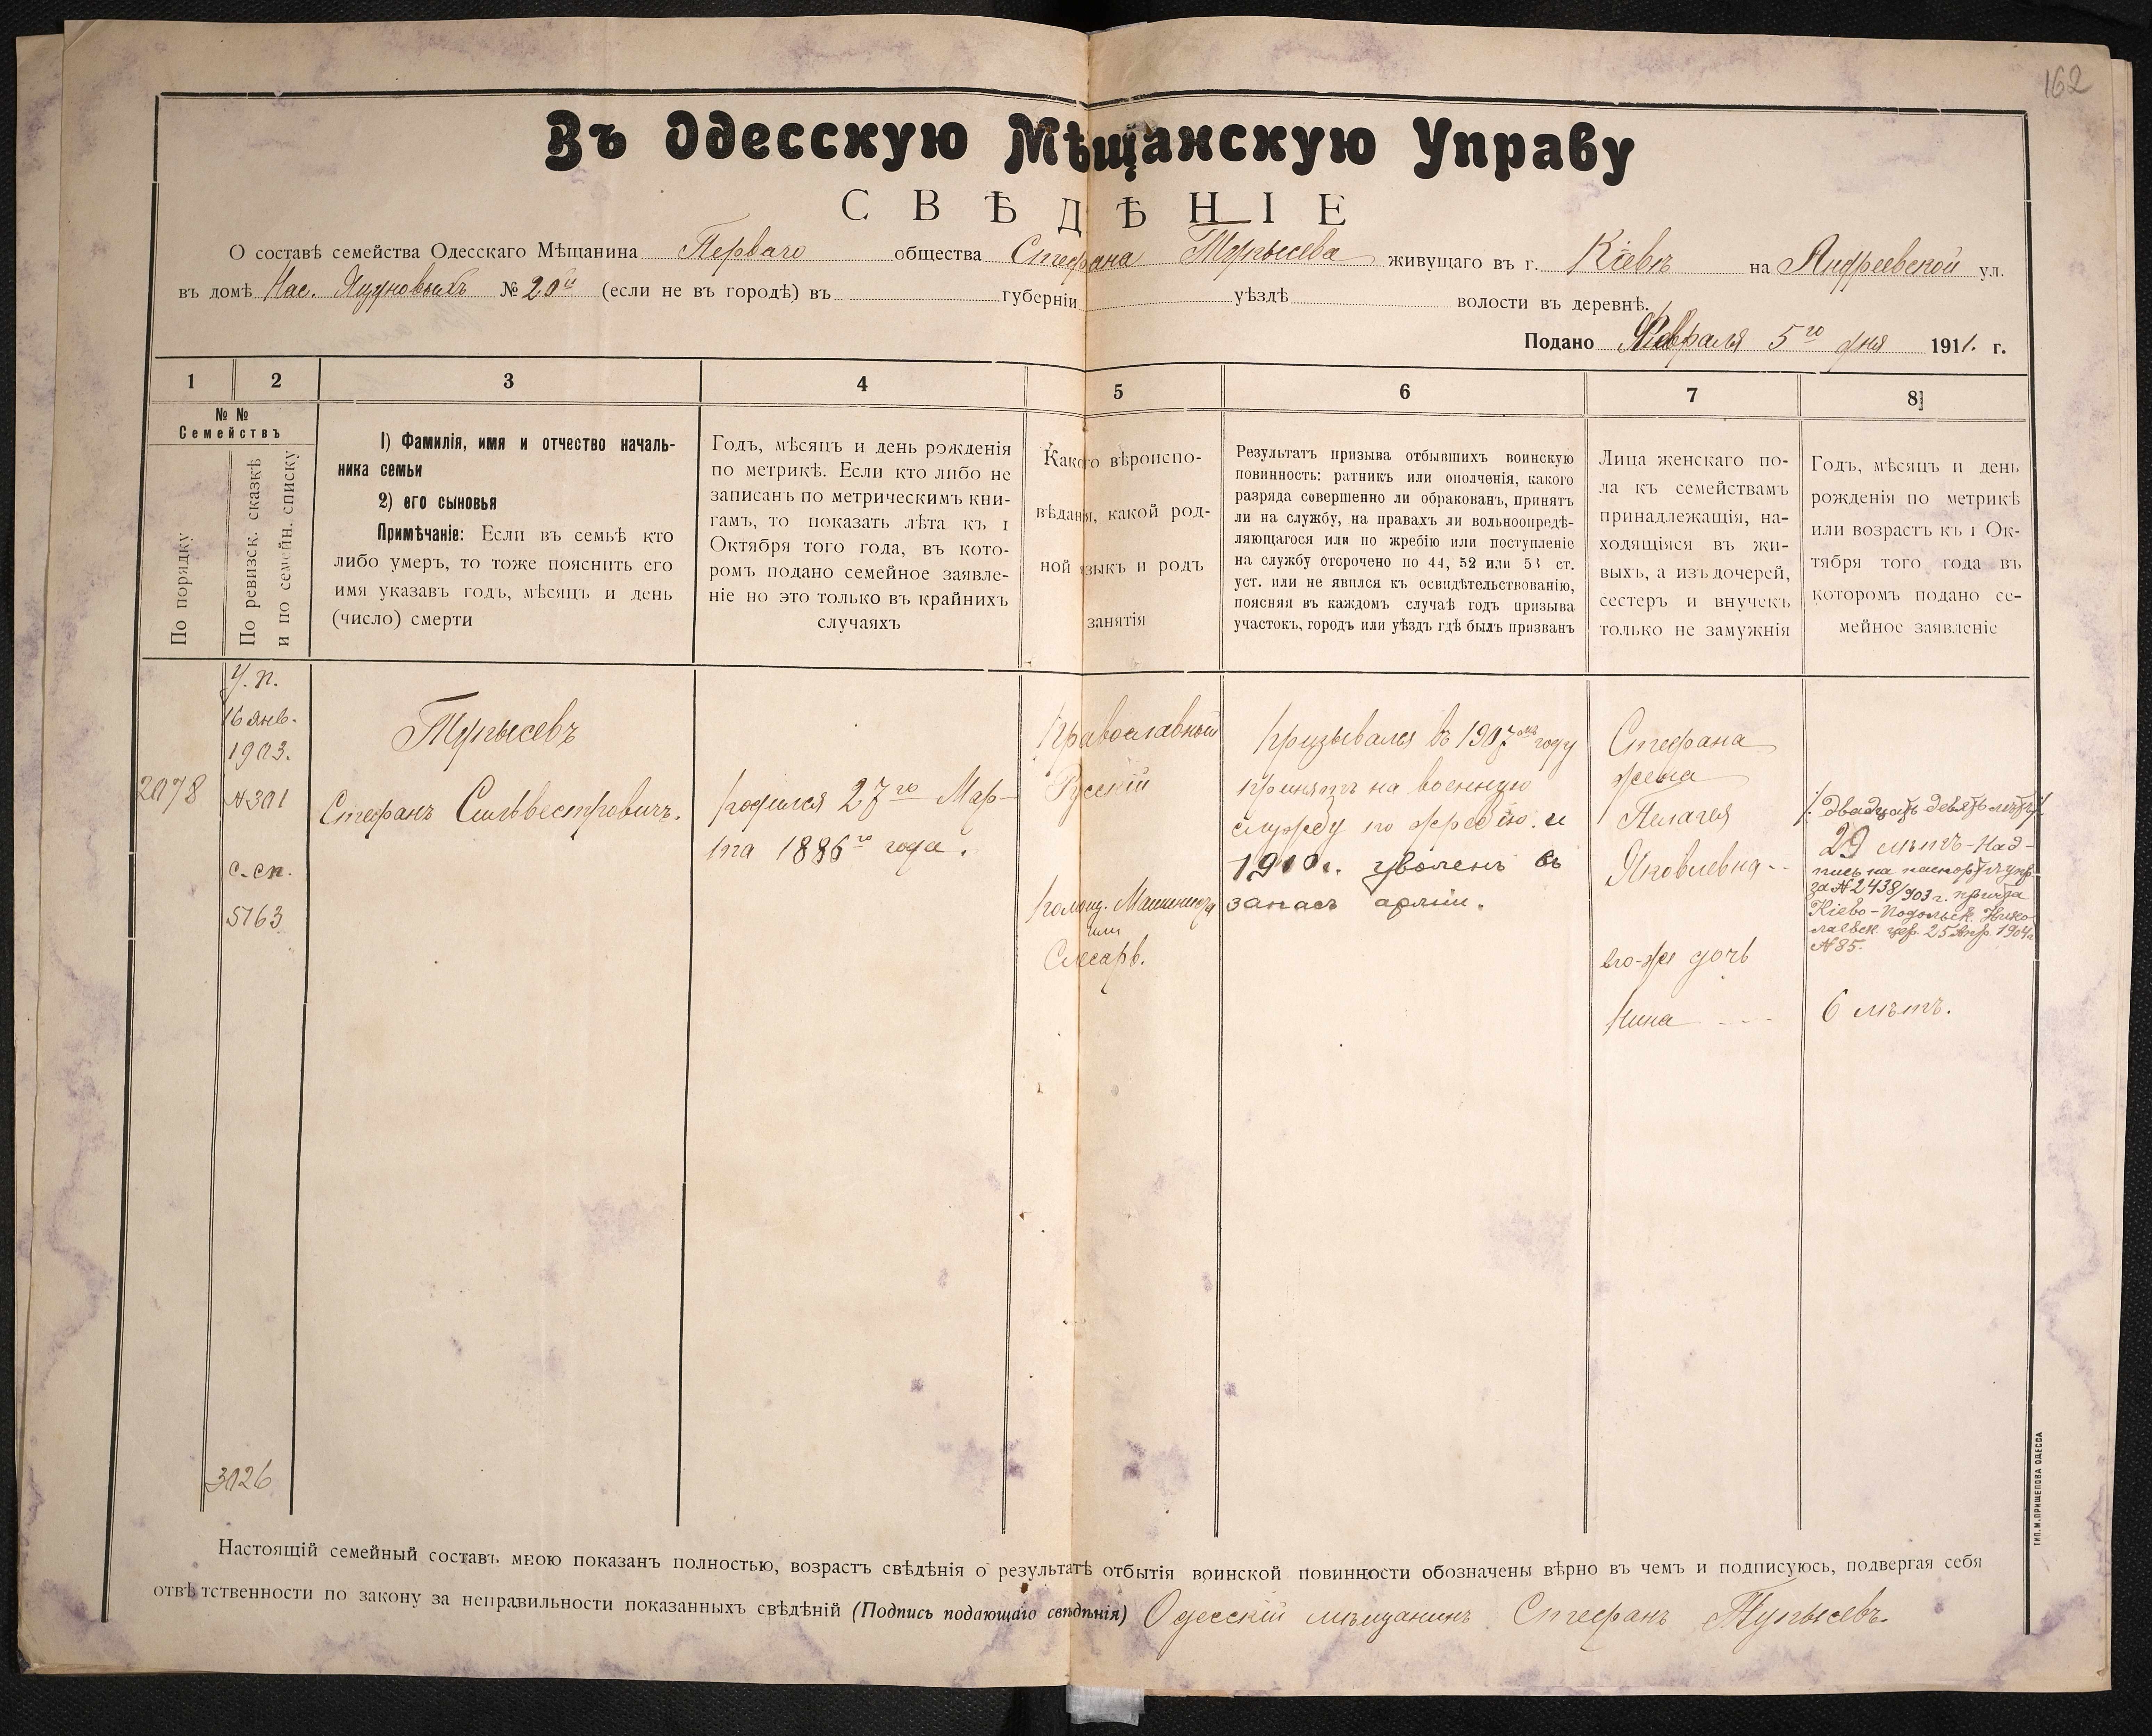 162
Въ Одесскую Мѣщанскую Управу
СВѢДѢНІЕ
О составѣ семейства Одесскаго Мѣщанина Перваго общества Стефана живущаго въ г. Кіевѣ на Андреевской ул.
въ домѣ Нас. № 20й (если не въ городѣ) въ губерніи уѣздѣ волости въ деревнѣ.
Подано Февраля 5го дня 1911. г.
1 2 3 4 5 6 7 8
№ №
Семействъ
По порядку
По ревизск. сказкѣ
и по семейн. списку
1) Фамилія, имя и отчество началь-
ника семьи
2) его сыновья
Примѣчаніе: Если въ семьѣ кто
либо умеръ, то тоже пояснить его
имя указавъ годъ, мѣсяцъ и день
(число) смерти
Годъ, мѣсяцъ и день рожденія
по метрикѣ. Если кто либо не
записанъ по метрическимъ кни-
гамъ, то показать лѣта къ 1
Октября того года, въ кото-
ромъ подано семейное заявле-
ніе но это только въ крайнихъ
случаяхъ
Какого вѣроиспо-
вѣданія, какой род-
ной языкъ и родъ
занятія
Результатъ призыва отбывшихъ воинскую
повинность: ратникъ или ополченія, какого
разряда совершенно ли обракованъ, принятъ
ли на службу, на правахъ ли вольноопредѣ-
ляющагося или по жребію или поступленіе
на службу отсрочено по 44, 52 или 53 ст.
уст. или не явился къ освидѣтельствованію,
поясняя въ каждомъ случаѣ годъ призыва
участокъ, городъ или уѣздъ гдѣ былъ призванъ
Лица женскаго по-
ла къ семействамъ
принадлежащія, на-
ходящіяся въ жи-
выхъ, а изъ дочерей,
сестеръ и внучекъ
только не замужнія
Годъ, мѣсяцъ и день
рожденія по метрикѣ
или возрастъ къ 1 Ок-
тября того года въ
которомъ подано се-
мейное заявленіе
2078
У.п.
16 янв.
1903.
№301
с.сп.
5163
3026
Стефанъ Сильвестровичъ.
родился 27го Мар-
та 1886го года.
Православный
Русскій
Машиниста
или
Слесарь.
Призывался въ 1907 году
принятъ на военную
службу по жребію. и
1910г. уволенъ въ
запасъ арміи.
Стефана
жена
Пелагея
Яковлевна --
его-же дочь
Нина ----
двадцать девять лѣтъ
29 лѣтъ - Над-
пись на паспортѣ упр.
за №2438/903 г. причта
Кіево-Подольск. Нико-
лаевск. цер. 25 Апр. 1904г
№85.
6 лѣтъ.
Настоящій семейный составъ мною показанъ полностью, возрастъ свѣдѣнія о результатѣ отбытія воинской повинности обозначены вѣрно въ чемъ и подписуюсь, подвергая себя
отвѣтственности по закону за неправильности показанныхъ свѣдѣній (Подпись подающаго свѣдѣнія) Одесскій мѣщанинъ Стефанъ
ТИП. М. ПРИЩЕПОВА ОДЕССА